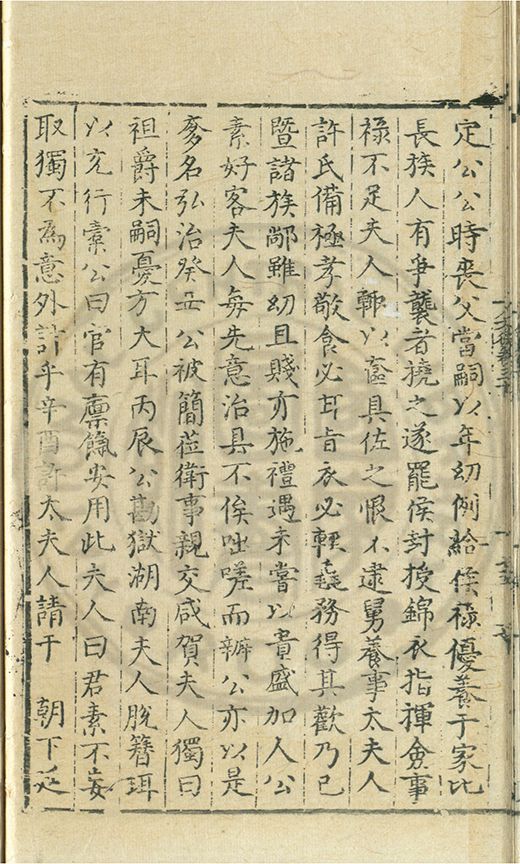 定公公時喪父當嗣以年幼例給侯祿優養于家比
長族人有爭襲者撓之遂罷侯封授錦衣指揮僉事
祿不足夫人輙以奩具佐之恨不逮舅養事太夫人
許氏備極孝敬食必甘旨衣必輕煖務得其歡乃已
暨諸族鄙雖幼且賤亦施禮遇未嘗以貴盛加人公
素好客夫人每先意治具不俟咄嗟而辦公亦以是
多名弘治癸丑公被簡蒞衛事親交咸賀夫人獨曰
祖爵未嗣憂方大耳丙辰公勘獄湖南夫人脫簪珥
以充行橐公曰官有廩餼安用此夫人曰君素不妄
取獨不爲意外計乎辛酉許太夫人請于 朝下廷